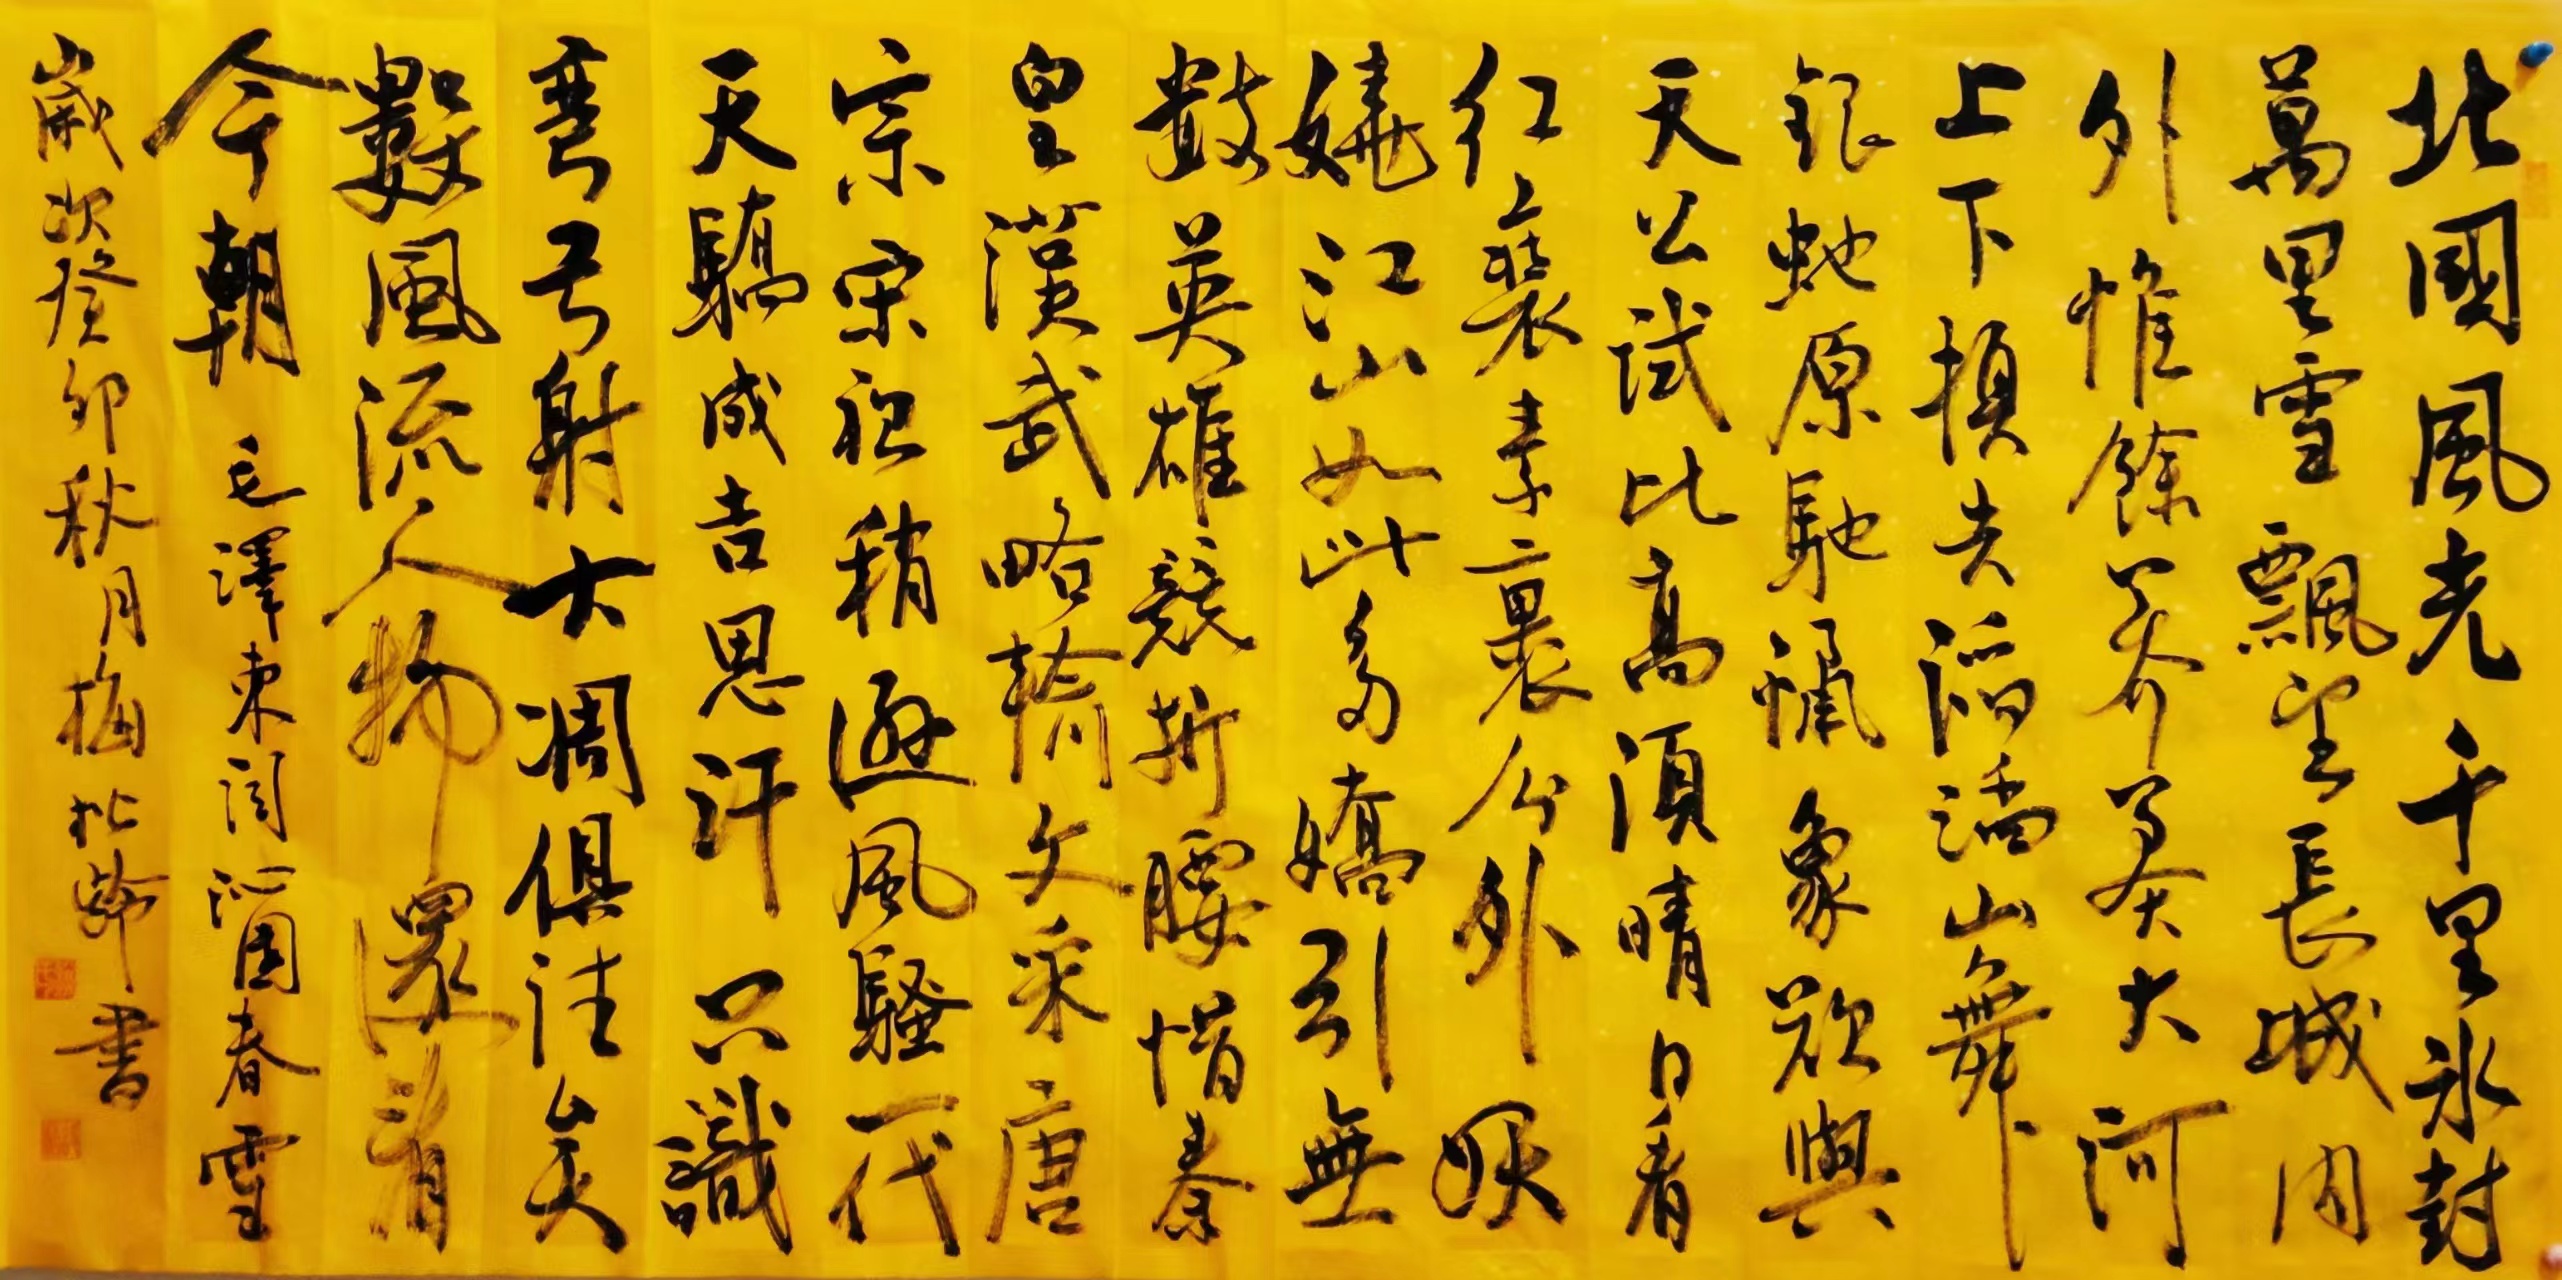 北國風光千里氷封
萬里雪飄望長城内
外惟餘莽莽大河
上下頓失滔滔山舞
銀蛇原馳蠟象欲與
天公試比高須晴日看
红裝素裹分外妖
嬈江山如此多嬌引無
數英雄競折腰惜秦
皇漢武略輸文采唐
宗宋祖稍遜風騷一代
天驕成吉思汗只識
弯弓射大凋俱往矣
數風流人物還看
今朝 毛澤東詞沁園春雪
歲次癸卯秋月梅松齡書